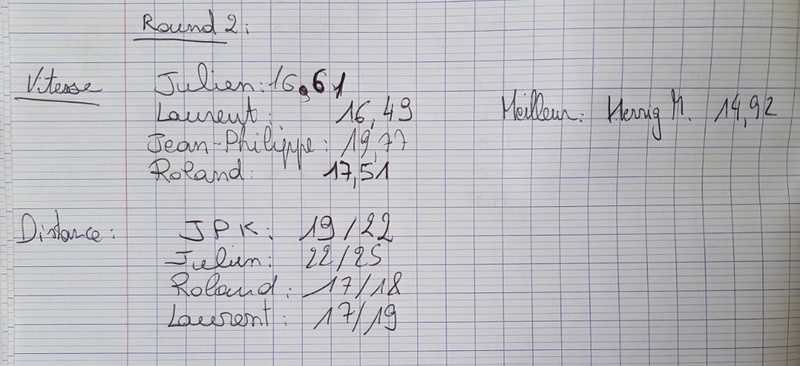 Round 2:
Vitesse Julien: 16,61
Laurent: 16,49 Meilleur: Herrig M. 14,92
Jean-Philippe: 19,77
Roland: 17,51
Distance: JPK: 19/22
Julien: 22/25
Roland: 17/18
Laurent: 17/19